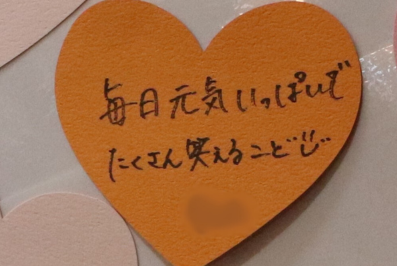 毎日元気いっぱいで
たくさん笑えること